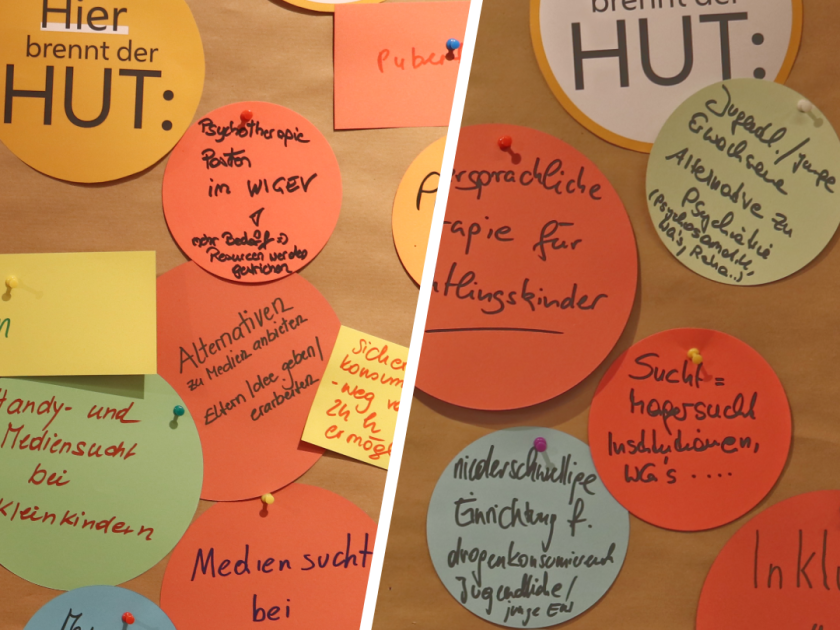 Hier
brennt der
HUT:
Puber
Psychotherapie
in WIGEV
mehr Bedarf
Resourcen werden
gestrichen
Alternativen
zu Medien anbieten
Eltern Idee geben/
erarbeiten
Siche
konsum
-weg v
zu h
ermög
n
Handy- und
Mediensucht
bei
Kleinkindern
Medien sucht
bei
brennt der
HUT:
Jugendl./junge
Erwachsene
Alternative zu
Psychiatrie
(Psychosomatik,
WG's, Reha..)
ersprachliche
apie für
htlingskinder
Sucht =
Magersucht
Institutionen,
WG's ....
niederschwellige
Einrichtung f.
drogenkonsumierend
Jugendliche/
junge EW
Inklu